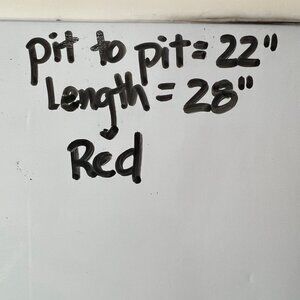 pit to pit = 22"
Length = 28"
Red